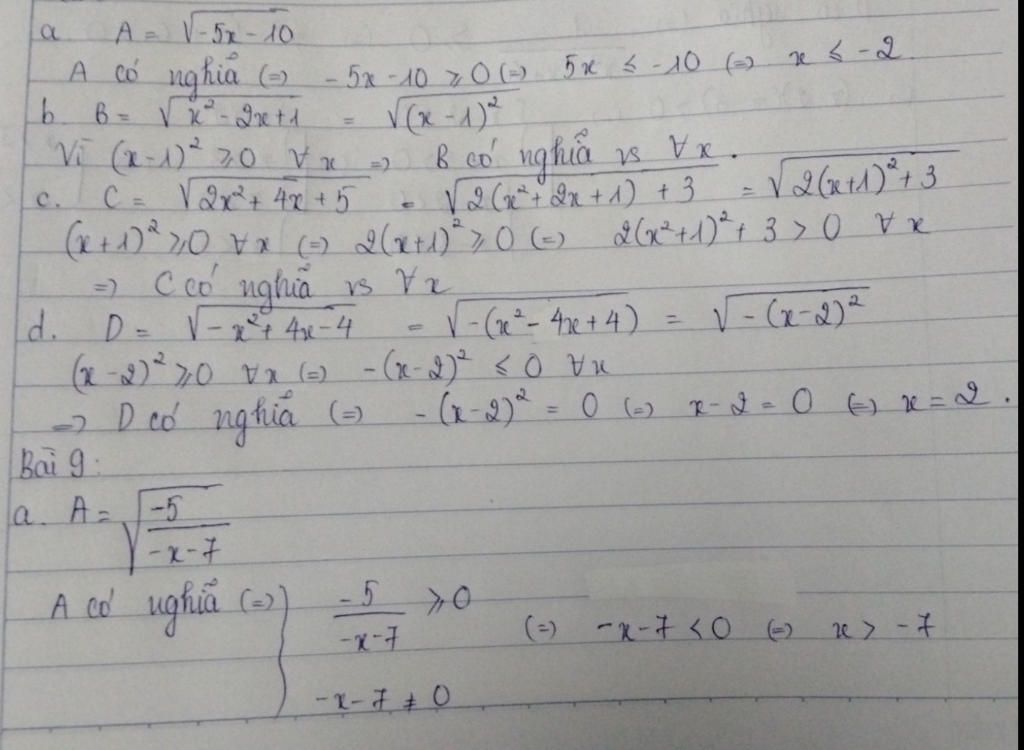 a. A = √(-5x-10)
A có nghĩa (=) -5x-10 ⩾ 0 (=) 5x ≤ -10 (=) x ≤ -2.
b. B = √(x² - 2x+1) = √((x-1)²)
Vì (x-1)² ⩾ 0 ∀x => B có nghĩa vs ∀x.
c. C = √(2x² + 4x + 5) = √(2(x² + 2x + 1) + 3) = √(2(x+1)² + 3)
(x+1)² ⩾ 0 ∀x (=) 2(x+1)² ⩾ 0 (=) 2(x²+1)² + 3 > 0 ∀x
=> C có nghĩa vs ∀x
d. D = √(-x² + 4x - 4) = √(-(x² - 4x + 4)) = √(-(x-2)²)
(x-2)² ⩾ 0 ∀x (=) -(x-2)² ≤ 0 ∀x
=> D có nghĩa (=) -(x-2)² = 0 (=) x-2 = 0 (=) x = 2.
Bài 9:
a. A = √(-5/(-x-7))
A có nghĩa (=) } -5/(-x-7) ⩾ 0 (=) -x-7 < 0 (=) x > -7
-x-7 ≠ 0